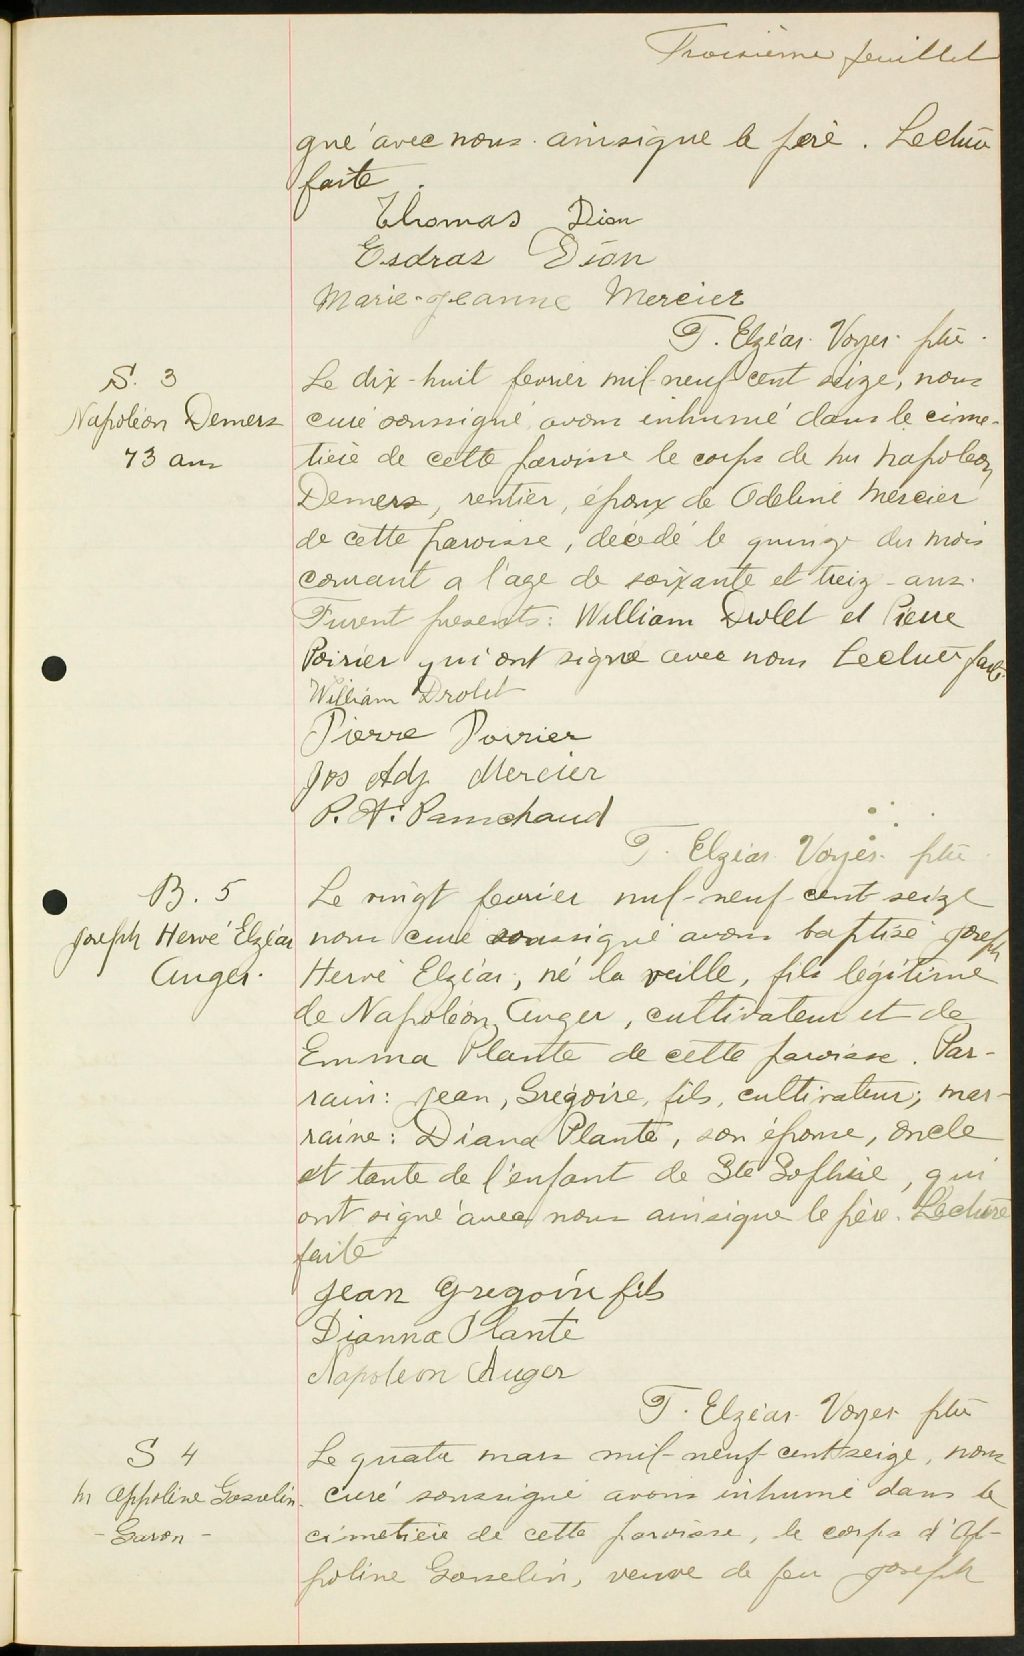 Troisième feuillet
gné avec nous ainsique le père. Lecture
faite.
Thomas Dion
Esdras Dion
Marie-Jeanne Mercier
T. Elzéar Voyer ptre
S. 3
Napoléon Demers
73 ans
Le dix-huit fevrier mil-neuf-cent seize, nous
curé soussigné avons inhumé dans le cime-
tière de cette paroisse le corps de Mr Napoléon
Demers, rentier, époux de Odeline Mercier
de cette paroisse, décédé le quinze du mois
courant a l'age de soixante et treize ans.
Furent presents: William Drolet et Pierre
Poirier qui ont signé avec nous Lecture faite
William Drolet
Pierre Poirier
Jos Adj Mercier
P. A. Painchaud
T. Elzéar Voyer ptre
B. 5
Joseph Hervé Elzéar
Auger.
Le vingt fevrier mil-neuf-cent seize
nous curé soussigné avons baptisé Joseph
Hervé Elzéar, né la veille, fils légitime
de Napoléon Auger, cultivateur et de
Emma Plante de cette paroisse. Par-
rain: Jean, Grégoire, fils, cultivateur; mar-
raine: Diana Plante, son épouse, oncle
et tante de l'enfant de Ste Sophie, qui
ont signé avec nous ainsique le père. Lecture
faite
Jean Gregoire fils
Dianna Plante
Napoleon Auger
T. Elzéar Voyer ptre
S 4
M Appoline Gosselin
- Garon -
Le quatre mars mil-neuf cent seize, nous
curé soussigné avons inhumé dans le
cimetière de cette paroisse, le corps d'Ap-
poline Gosselin, veuve de feu Joseph